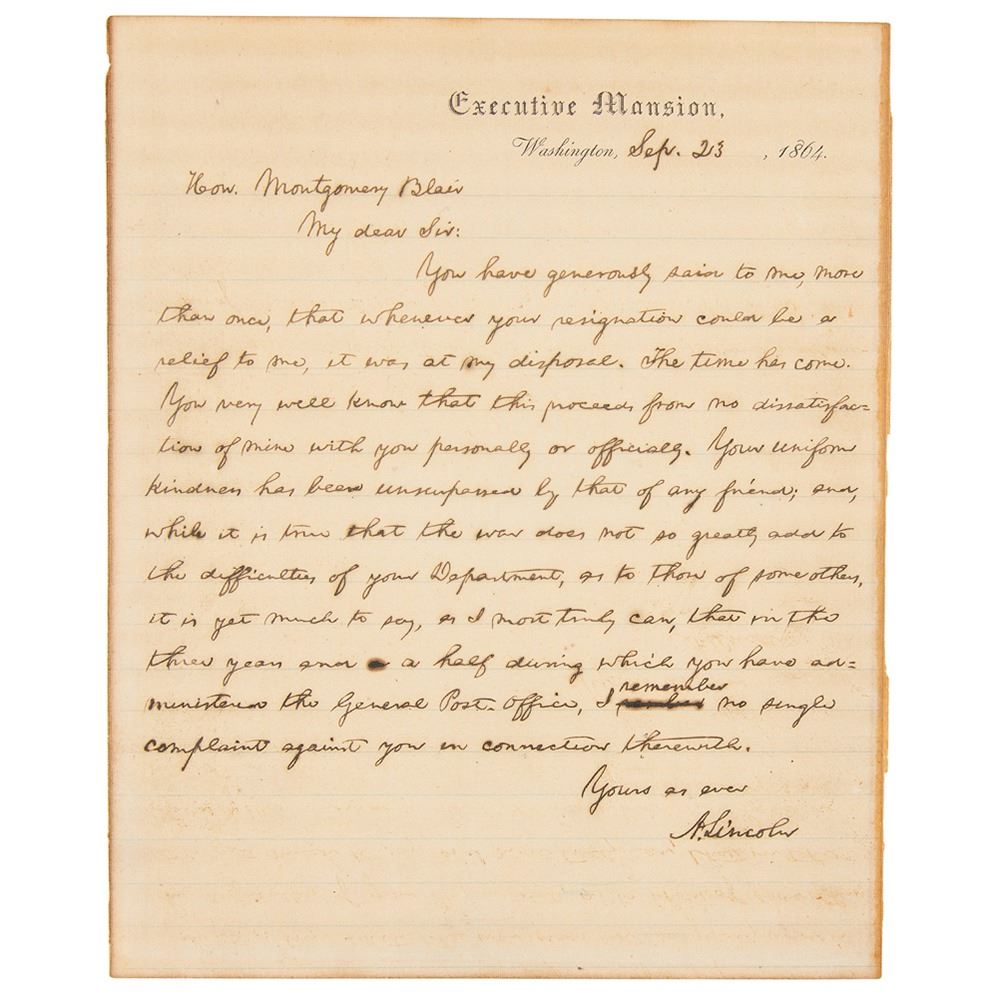 Executive Mansion,
Washington, Sep. 23, 1864.
Hon. Montgomery Blair
My dear Sir:
You have generously said to me, more
than once, that whenever your resignation could be a
relief to me, it was at my disposal. The time has come.
You very well know that this proceeds from no dissatisfac=
tion of mine with you personally or officially. Your uniform
kindness has been unsurpassed by that of any friend; and,
while it is true that the war does not so greatly add to
the difficulties of your Department, as to those of some others,
it is yet much to say, as I most truly can, that in the
three years and a half during which you have ad=
ministered the General Post-Office, I remember no single
complaint against you in connection therewith.
Yours as ever
A. Lincoln